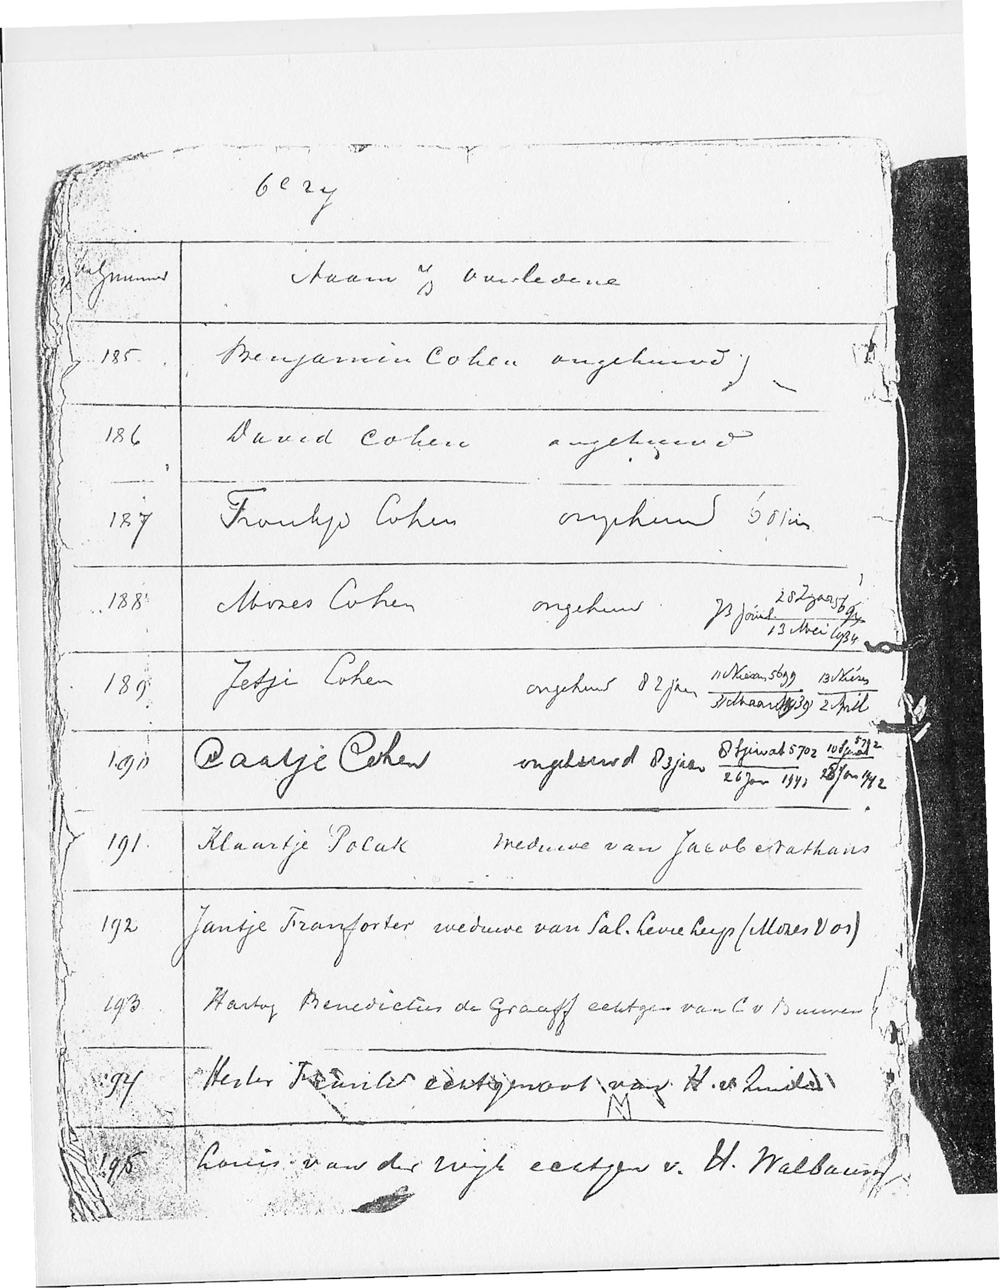 6e ry
Volgnummer Naam v/d Overledene
185 Benjamin Cohen ongehuwd
186 David Cohen ongehuwd
187 Froukje Cohen ongehuwd
188 Mozes Cohen ongehuwd 73 jaar 13 Mei 1934
189 Jetje Cohen ongehuwd 82 jaar 11 Nisan 5699 13 Nisan
31 Maart 1939 2 April
190 Caatje Cohen ongehuwd 83 jaar 8 Sjewat 5702 10 Sjewat 5702
26 Jan 1942 28 Jan 1942
191 Klaartje Polak weduwe van Jacob Nathans
192 Jantje Franforter weduwe van Sal. Levie (Mozes Vos)
193 Hartog Benedictus de Graaff echtgen van C v Buuren
194 Hester echtgenoot van H. v.
195 Louis van der Wijk echtgen v. H. Walbaum